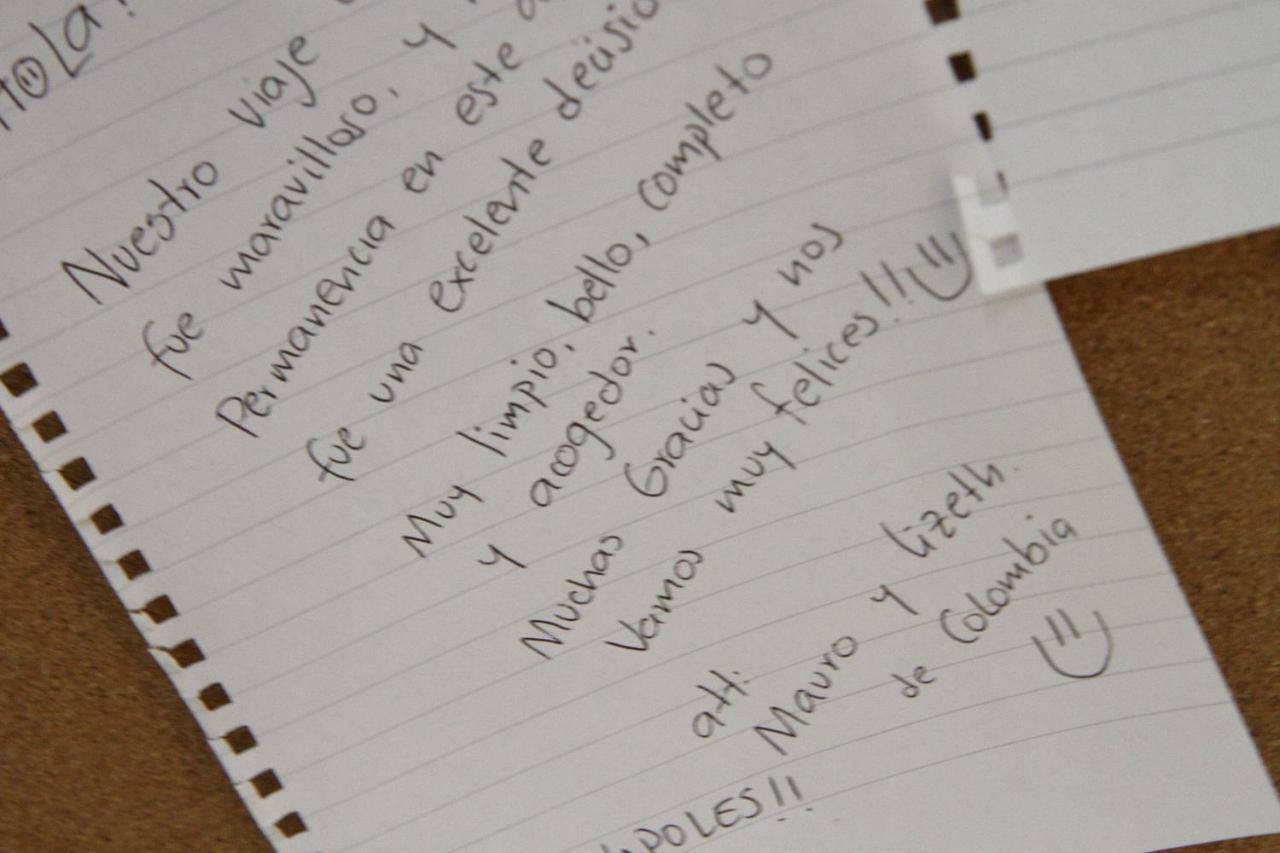 HOLA!
Nuestro viaje
fue maravilloso, y
Permanencia en este
fue una excelente decisio
Muy limpio, bello, completo
y acogedor.
Muchas Gracias y nos
Vamos muy felices!!
att:
Mauro y Lizeth.
de Colombia
POLES!!